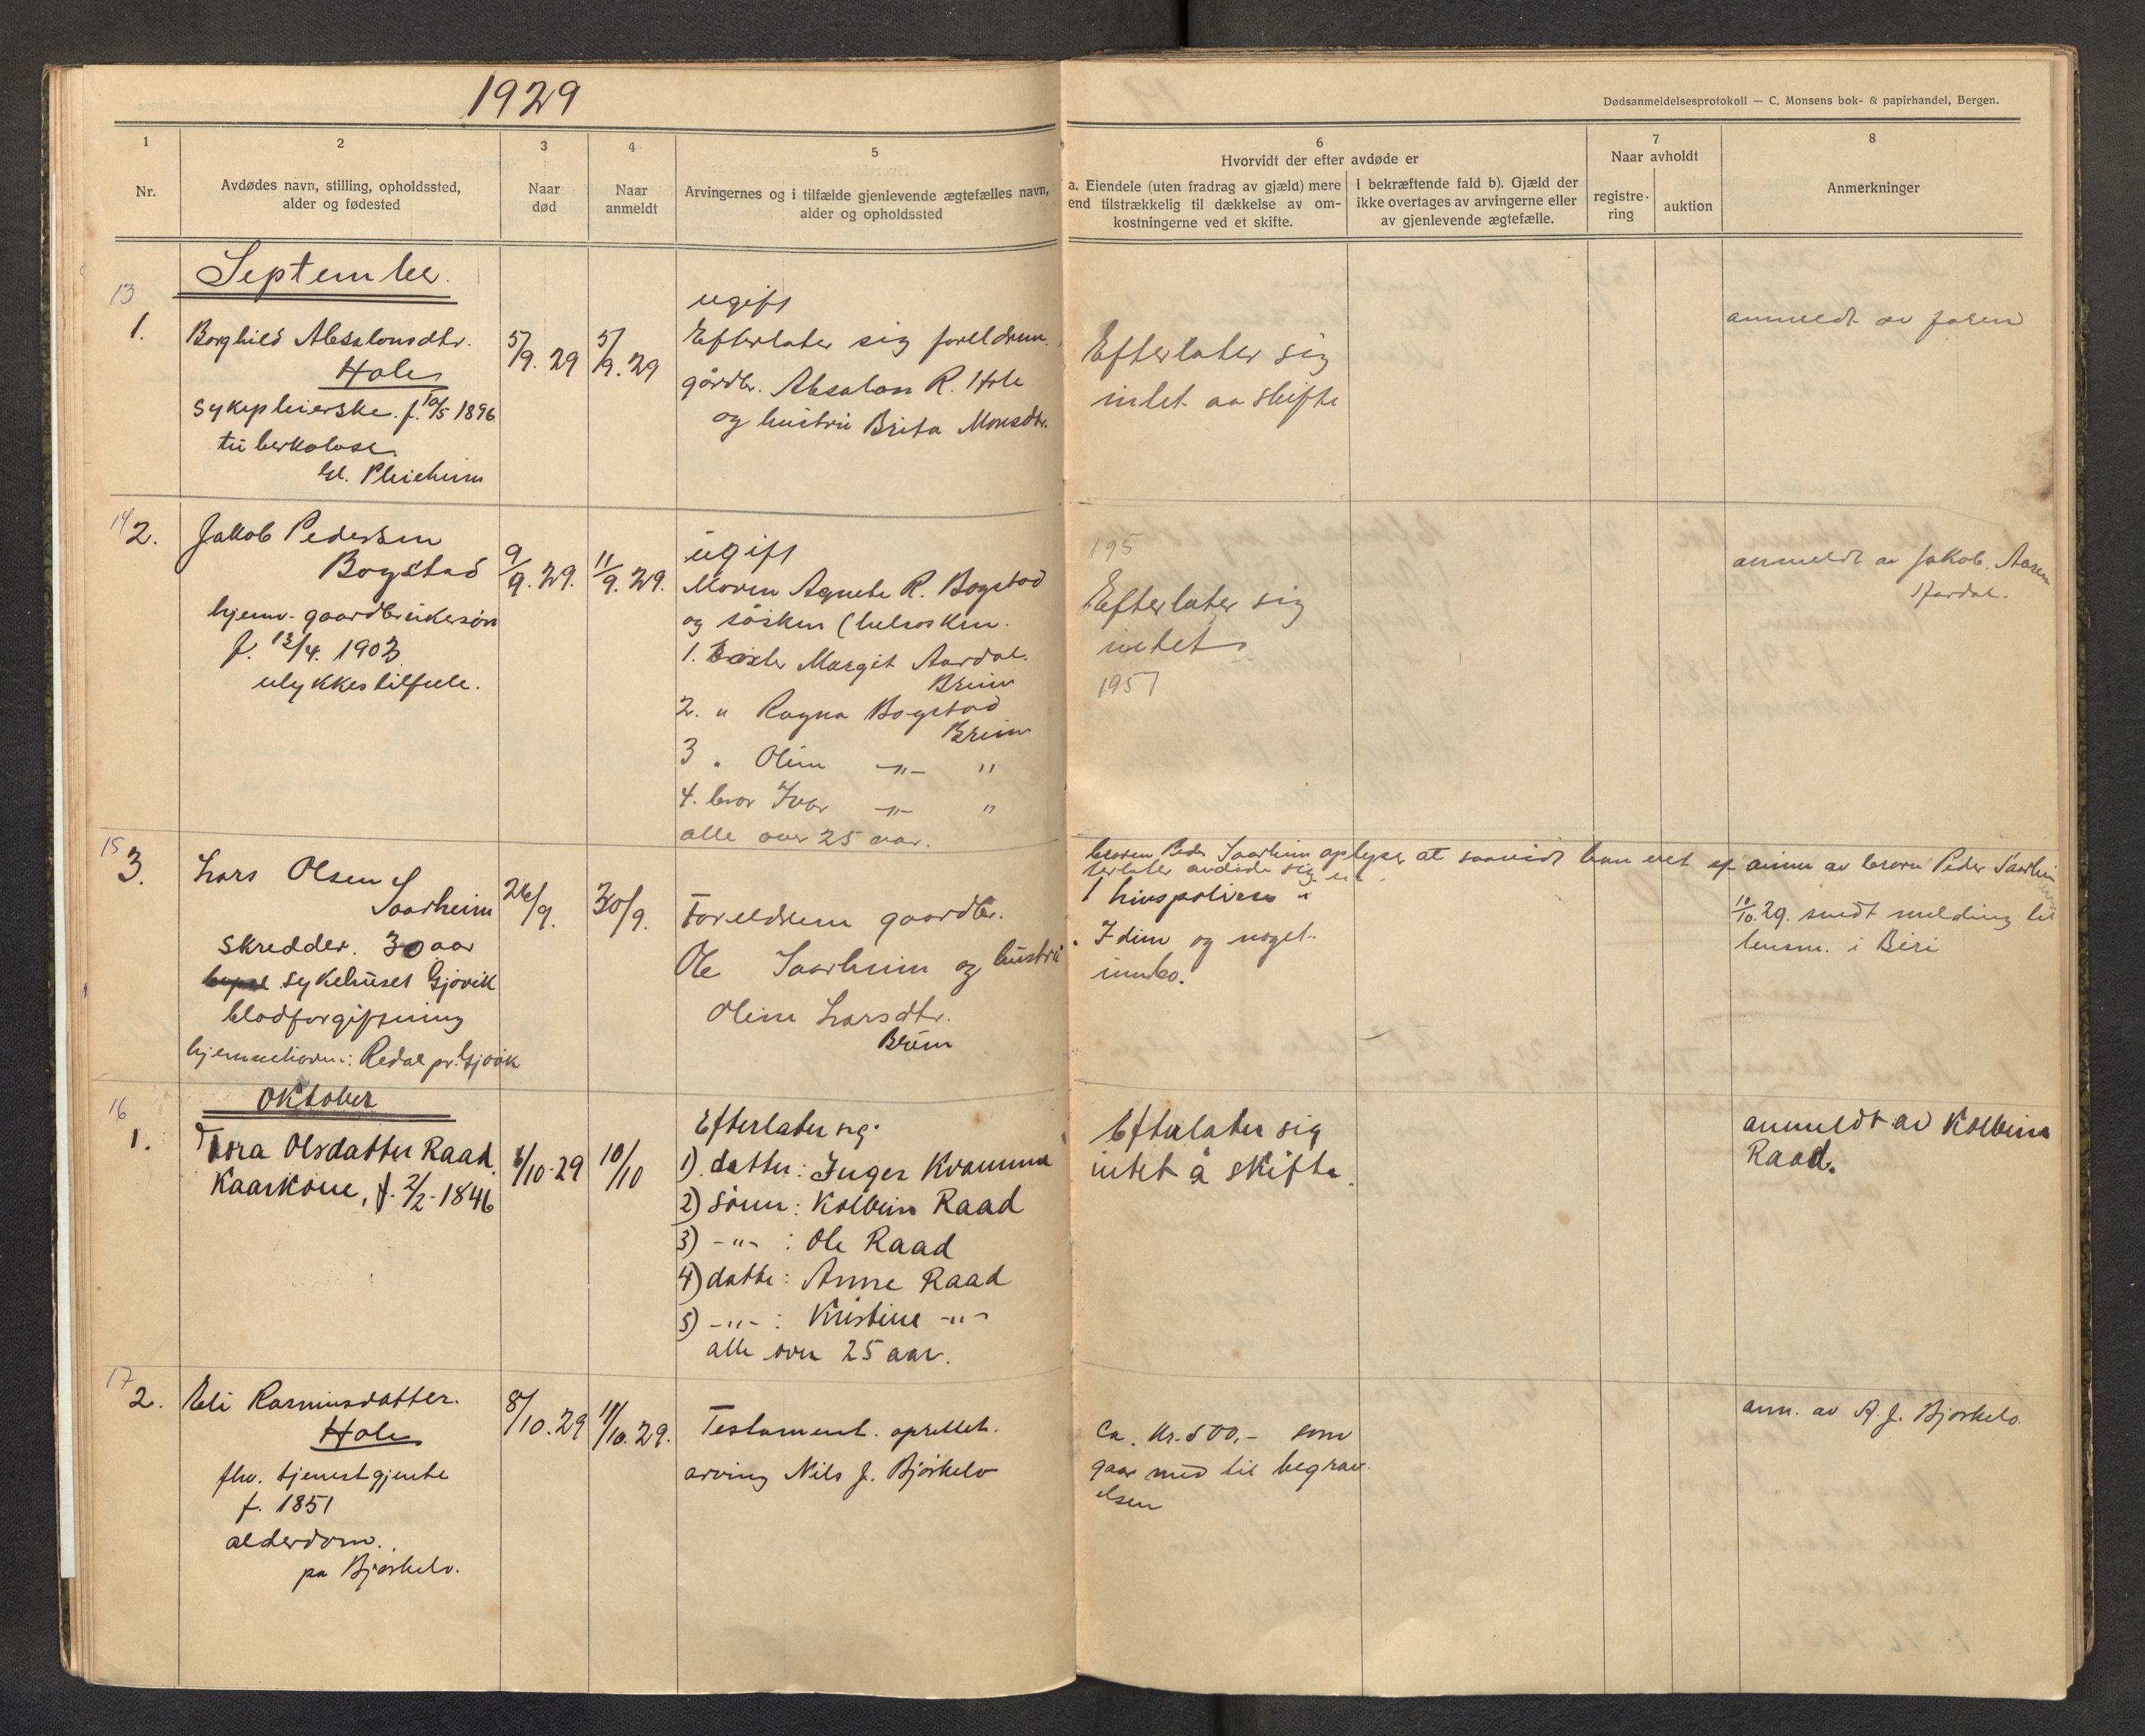 1929
Dødsanmeldelsesprotokoll — C. Monsens bok- & papirhandel, Bergen.
1
Nr.
2
Avdødes navn, stilling, opholdssted,
alder og fødested
3
Naar
død
4
Naar
anmeldt
5
Arvingernes og i tilfælde gjenlevende ægtefælles navn,
alder og opholdssted
6
Hvorvidt der efter avdøde er
a. Eiendele (uten fradrag av gjæld) mere
end tilstrækkelig til dækkelse av om-
kostningerne ved et skifte.
I bekræftende fald b). Gjæld der
ikke overtages av arvingerne eller
av gjenlevende ægtefælle.
7
Naar avholdt
registre-
ring
auktion
8
Anmerkninger
September.
13
1.
Borghild Absalonsdtr.
Hole
sykepleierske. f. 10/5 1896
tuberkolose.
Gl. Pleieheim
5/9. 29
5/9. 29
ugift
Efterlater sig foreldrene.
gårdbr. Absalon R. Hole
og hustru Brita Monsdtr.
Efterlater sig
intet aa skifte
anmeldt av faren
14
2.
Jakob Pedersen
Bogstad
hjemv. gaardbrukersøn
f. 13/4. 1903
ulykkestilfele.
9/9. 29.
11/9. 29.
ugift
Moren Agnete R. Bogstad
og søsken (helsosken.
1. Søster Margit Aardal.
Breim
2. " Ragna Bogstad
Breim
3 " Oline -"- "
4. bror Ivar -"- "
alle over 25 aar.
195
Efterlater sig
intet
1957
anmeldt av Jakob. Aasen
Aardal.
15
3.
Lars Olsen
Saarheim
skredder. 30 aar
sykehuset Gjøvik
blodforgiftning
hjemmehøren: Redal pr. Gjøvik
26/9.
30/9.
Foreldrene gaardbr.
Ole Saarheim og hustru
Oline Larsdtr.
Breim
broren Peder Saarheim oplyser at saavidt han vet ef-
terlater avdøde sig en
1 livspolise i
Idun og noget
innbo.
anm av broren Peder Saarheim
10/10. 29. sendt melding til
lensm. i Biri
Oktober
16
1.
Tora Olsdatter Raad.
Kaarkone, f. 2/2 - 1846
6/10-29
10/10
Efterlater sig:
1). datter: Inger Kvamme
2) sønn: Kolbein Raad
3) -"- : Ole Raad
4) datter: Anne Raad
5) -"- : Kristine -"-
alle over 25 aar.
Efterlater sig
intet å skifte.
anmeldt av Kolbein
Raad.
17
2.
Eli Rasmusdatter.
Hole
fhv. tjenestgjente
f. 1851
alderdom.
pa Bjørkelo.
8/10. 29
11/10. 29.
Testament. oprettet.
arving Nils J. Bjørkelo
Ca. Kr. 500,- som
gaar med til begrav-
elsen
anm. av A. J. Bjørkelo.